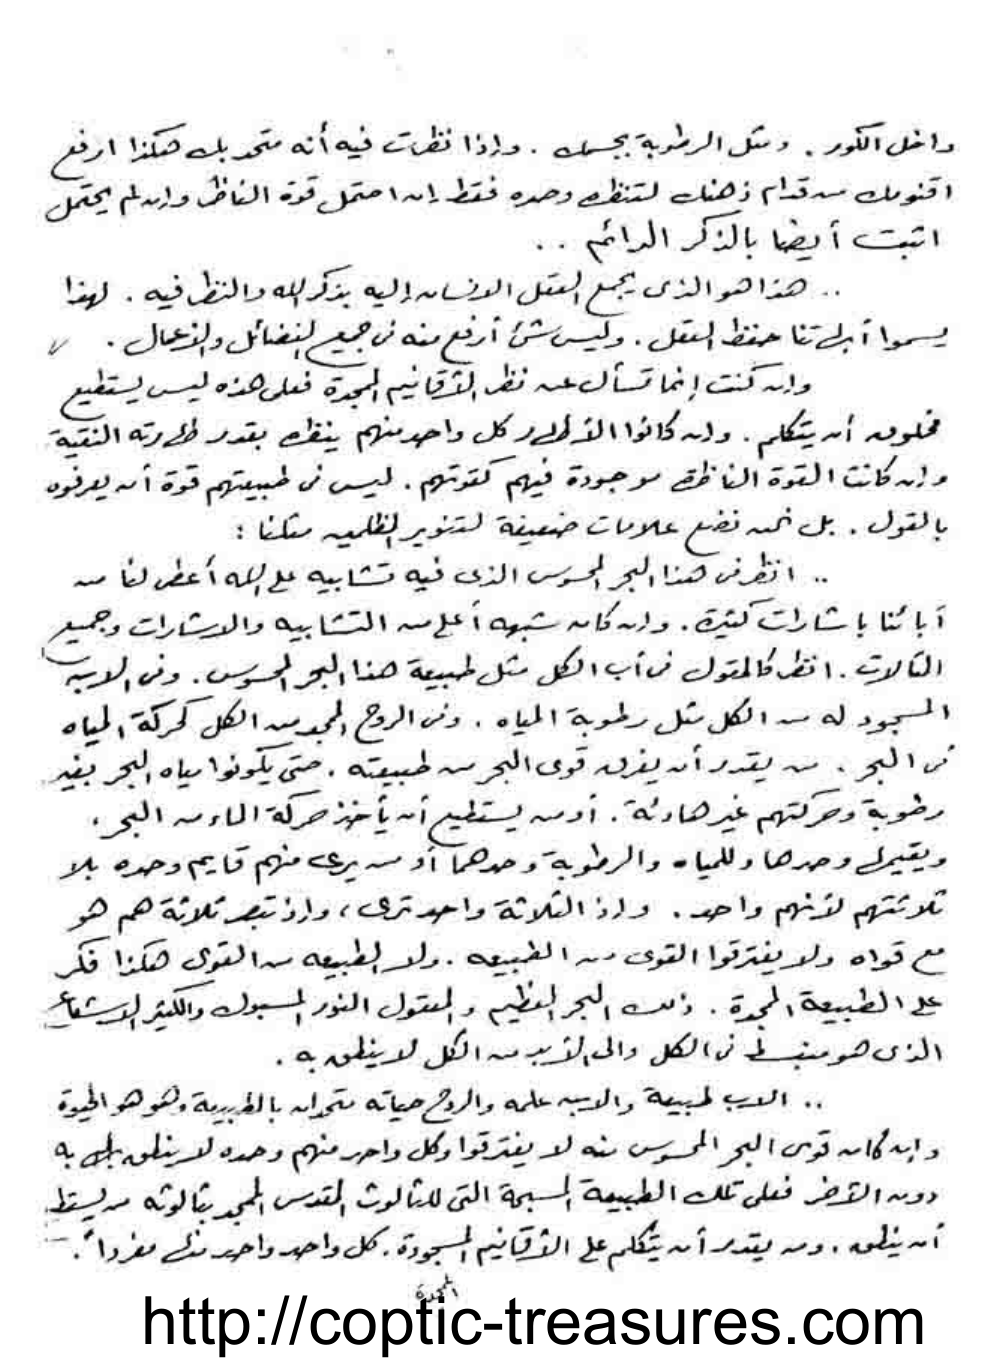 داخل الكور . ومثل الرطوبة بجسمك . وإذا نظرت فيه أنه متحد بك هكذا ارفع
اقنومك من قدام ذهنك لتنظره وحده فقط إن احتمل قوة الناظر وإن لم يحتمل
اثبت أيضا بالذكر الدائم ..
.. هذا هو الذى يجمع العقل الانسان إليه بذكر الله والنظر فيه . لهذا
يسموا أبهاتنا حفظ العقل . وليس شئ أرفع منه فى جميع الفضائل والأعمال .
وإن كنت إنما تسأل عن نظر الأقانيم الممجدة فعلى هذه ليس يستطيع
مخلوق أن يتكلم . وإن كانوا الأطهار كل واحد منهم ينظره بقدر طهارته النقية
وإن كانت القوة الناظرة موجودة فيهم كقوتهم . ليس فى طبيعتهم قوة أن يعرفوه
بالقول . بل نحن نضع علامات ضعيفة لتنوير المظلمين مثلنا :
.. انظر فى هذا البحر المحسوس الذى فيه تشابيه على الله أعطى لنا من
آبائنا باشارات كثيرة . وإن كان شبهه أعلى من التشابيه والاشارات وجميع
الثالات . انظر كالمقول فى أب الكل مثل طبيعة هذا البحر المحسوس . وفى الابن
المسجود له من الكل مثل رطوبة المياه . وفى الروح الممجد من الكل كحركة المياه
فى البحر . من يقدر أن يفرق قوى البحر من طبيعته . حتى يكونوا مياه البحر بغير
رطوبة وحركتهم غير هادئة . أو من يستطيع أن يأخذ حركة الماء من البحر .
ويقيمها وحدها وللمياه والرطوبة وحدهما أو من يرى منهم قايم وحده بلا
ثلاثتهم لأنهم واحد . وإذ الثلاثة واحد ترى ، وإذ تبصر ثلاثة هم هو
مع قواه ولا يفترقوا القوى من الطبيعه . ولا الطبيعه من القوى هكذا فكر
على الطبيعة الممجدة . ذلك البحر العظيم والمعقول النور المسبوك والكثير الاشعاع
الذى هو منبسط فى الكل وإلى الأبد من الكل لا ينطق به .
.. الاب طبيعة والابن علمه والروح حياته متحدان بالطبيعة وهو هو الحيوة
وإن كان قوى البحر المحسوس منه لا يفترقوا وكل واحد منهم وحده لا ينطق به
دون الأخر فعلى تلك الطبيعة المسبحة التى للثالوث المقدس الممجد بثالوثه من يستطيع
أن ينطق . ومن يقدر أن يتكلم على الأقانيم المسجودة . كل واحد واحد منها مفرداً .
الممجدة
http://coptic-treasures.com